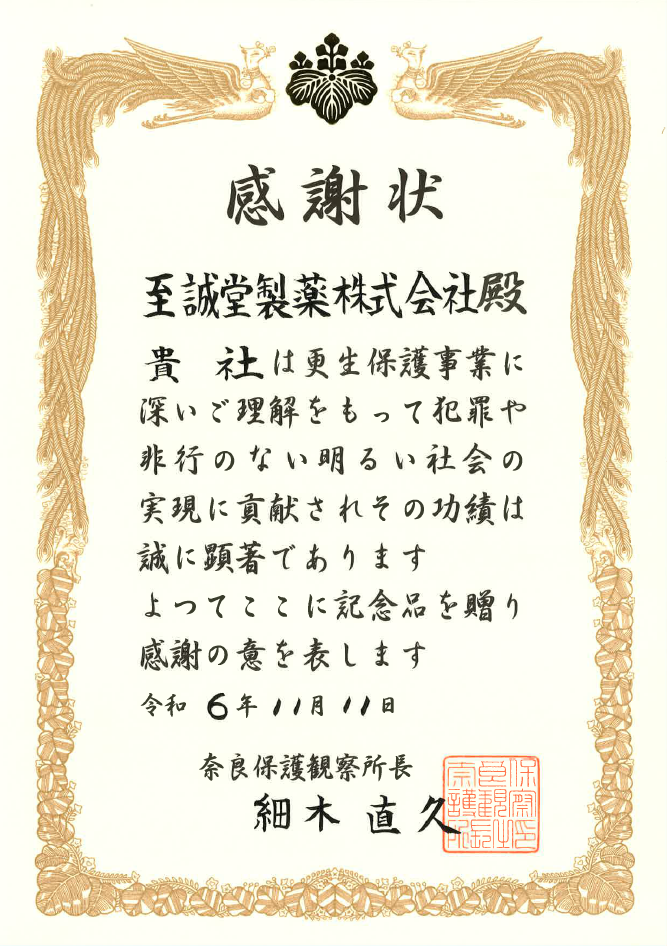 感謝状
至誠堂製薬株式会社殿
貴 社は更生保護事業に
深いご理解をもって犯罪や
非行のない明るい社会の
実現に貢献されその功績は
誠に顕著であります
よつてここに記念品を贈り
感謝の意を表します
令和 6年 11月 11日
奈良保護観察所長
細木直久